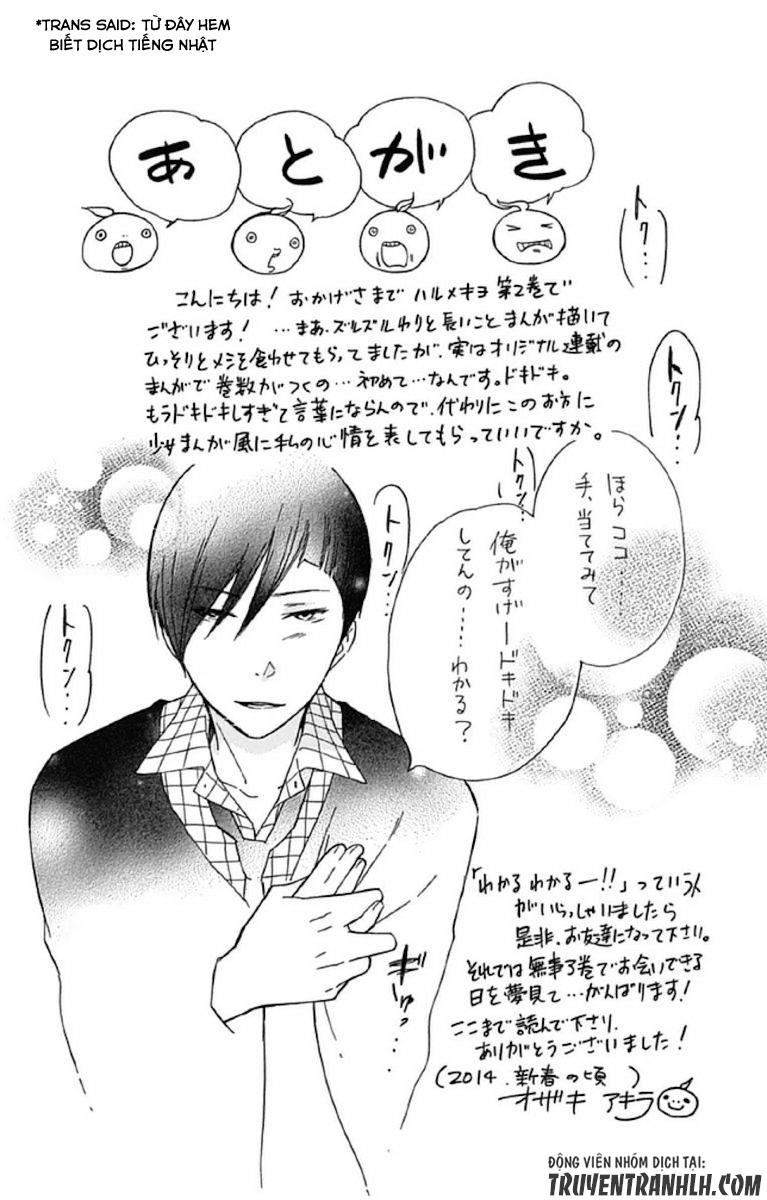 *TRANS SAID: TỪ ĐÂY HEM
BIẾT DỊCH TIẾNG NHẬT
あとがき
トクン…
こんにちは！おかげさまで ハルメキヨ 第2巻で
ございます！…まあ、ズルズルわりと長いことまんが描いて
ひっそりとメシを食わせてもらってましたが、実はオリジナル連載の
まんがで巻数がつくの…初めて…なんです。ドキドキ。
もうドキドキしすぎて言葉にならんので、代わりにこのお方に
少女まんが風に私の心情を表してもらっていいですか。
トクン…
トクン…
ほらココ……
手、当ててみて
俺がすげードキドキ
してんの……わかる？
トクン…
トクン…
ぎゅっ…
「わかるわかるー!!」っていう人
がいらっしゃいましたら
是非、お友達になって下さい。
それでは無事3巻でお会いできる
日を夢見て…がんばります！
ここまで読んで下さり、
ありがとうございました！
(2014.新春の頃)
オザキ アキラ
ĐỘNG VIÊN NHÓM DỊCH TẠI:
TRUYENTRANHLH.COM